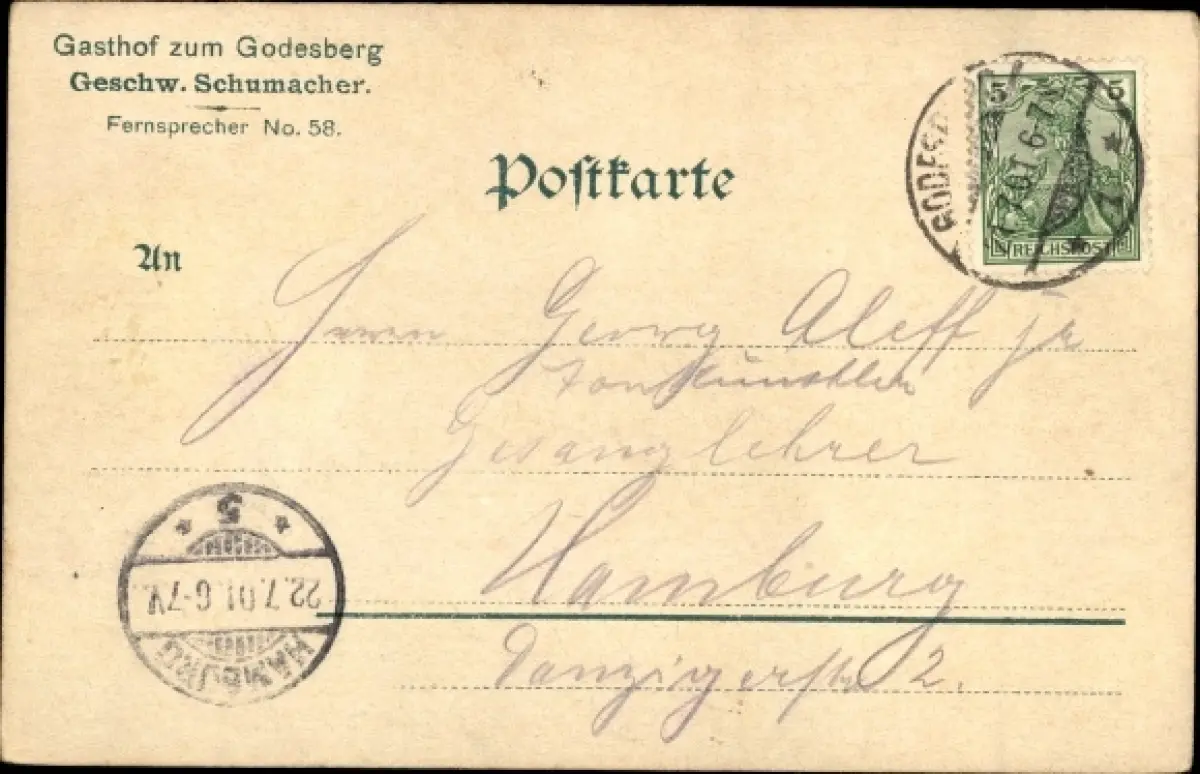 Gasthof zum Godesberg
Geschw. Schumacher.
Fernsprecher No. 58.
Postkarte
An
5 5
REICHSPOST
GODES
7.01.6-7V
Herrn Georg Aleff jr
Tonkünstler
Gesanglehrer
Hamburg
Danzigerstr 2.
5
22.7.01.6-7V.
HAMBURG